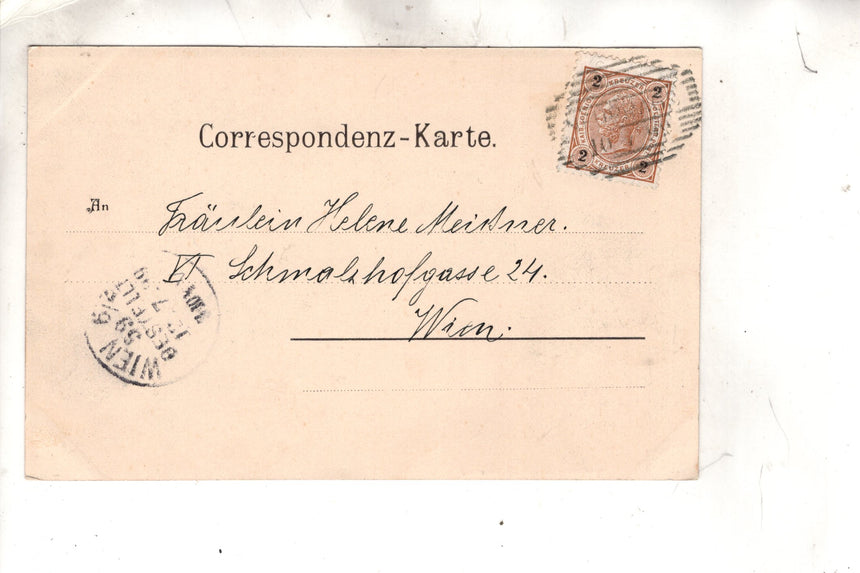 Correspondenz-Karte.
2 KREUZER 2
2 KREUZER 2
An
Fräulein Helene Meißner.
VI Schmalzhofgasse 24.
Wien.
WIEN 6/2
BESTELLT